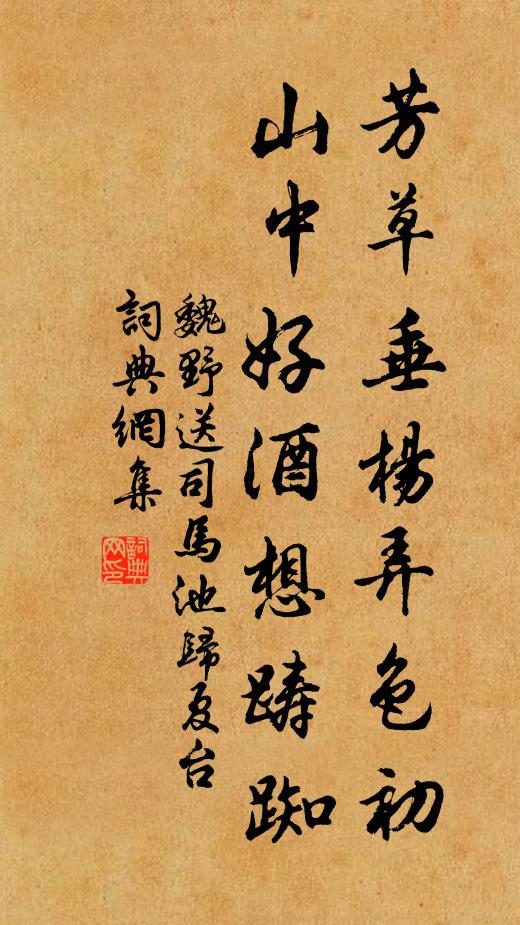 芳草垂楊弄色初
山中好酒想踌踟
魏野送司馬池歸夏台
詞典網集
詞典
网印